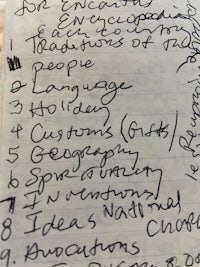 for Encarta
Encyclopedia
Each country
1 Traditions of the
people
2 Language
3 Holiday
4 Customs (Gifts)
5 Geography
6 Spirituality
7 Inventions
8 Ideas National
9. Avocations